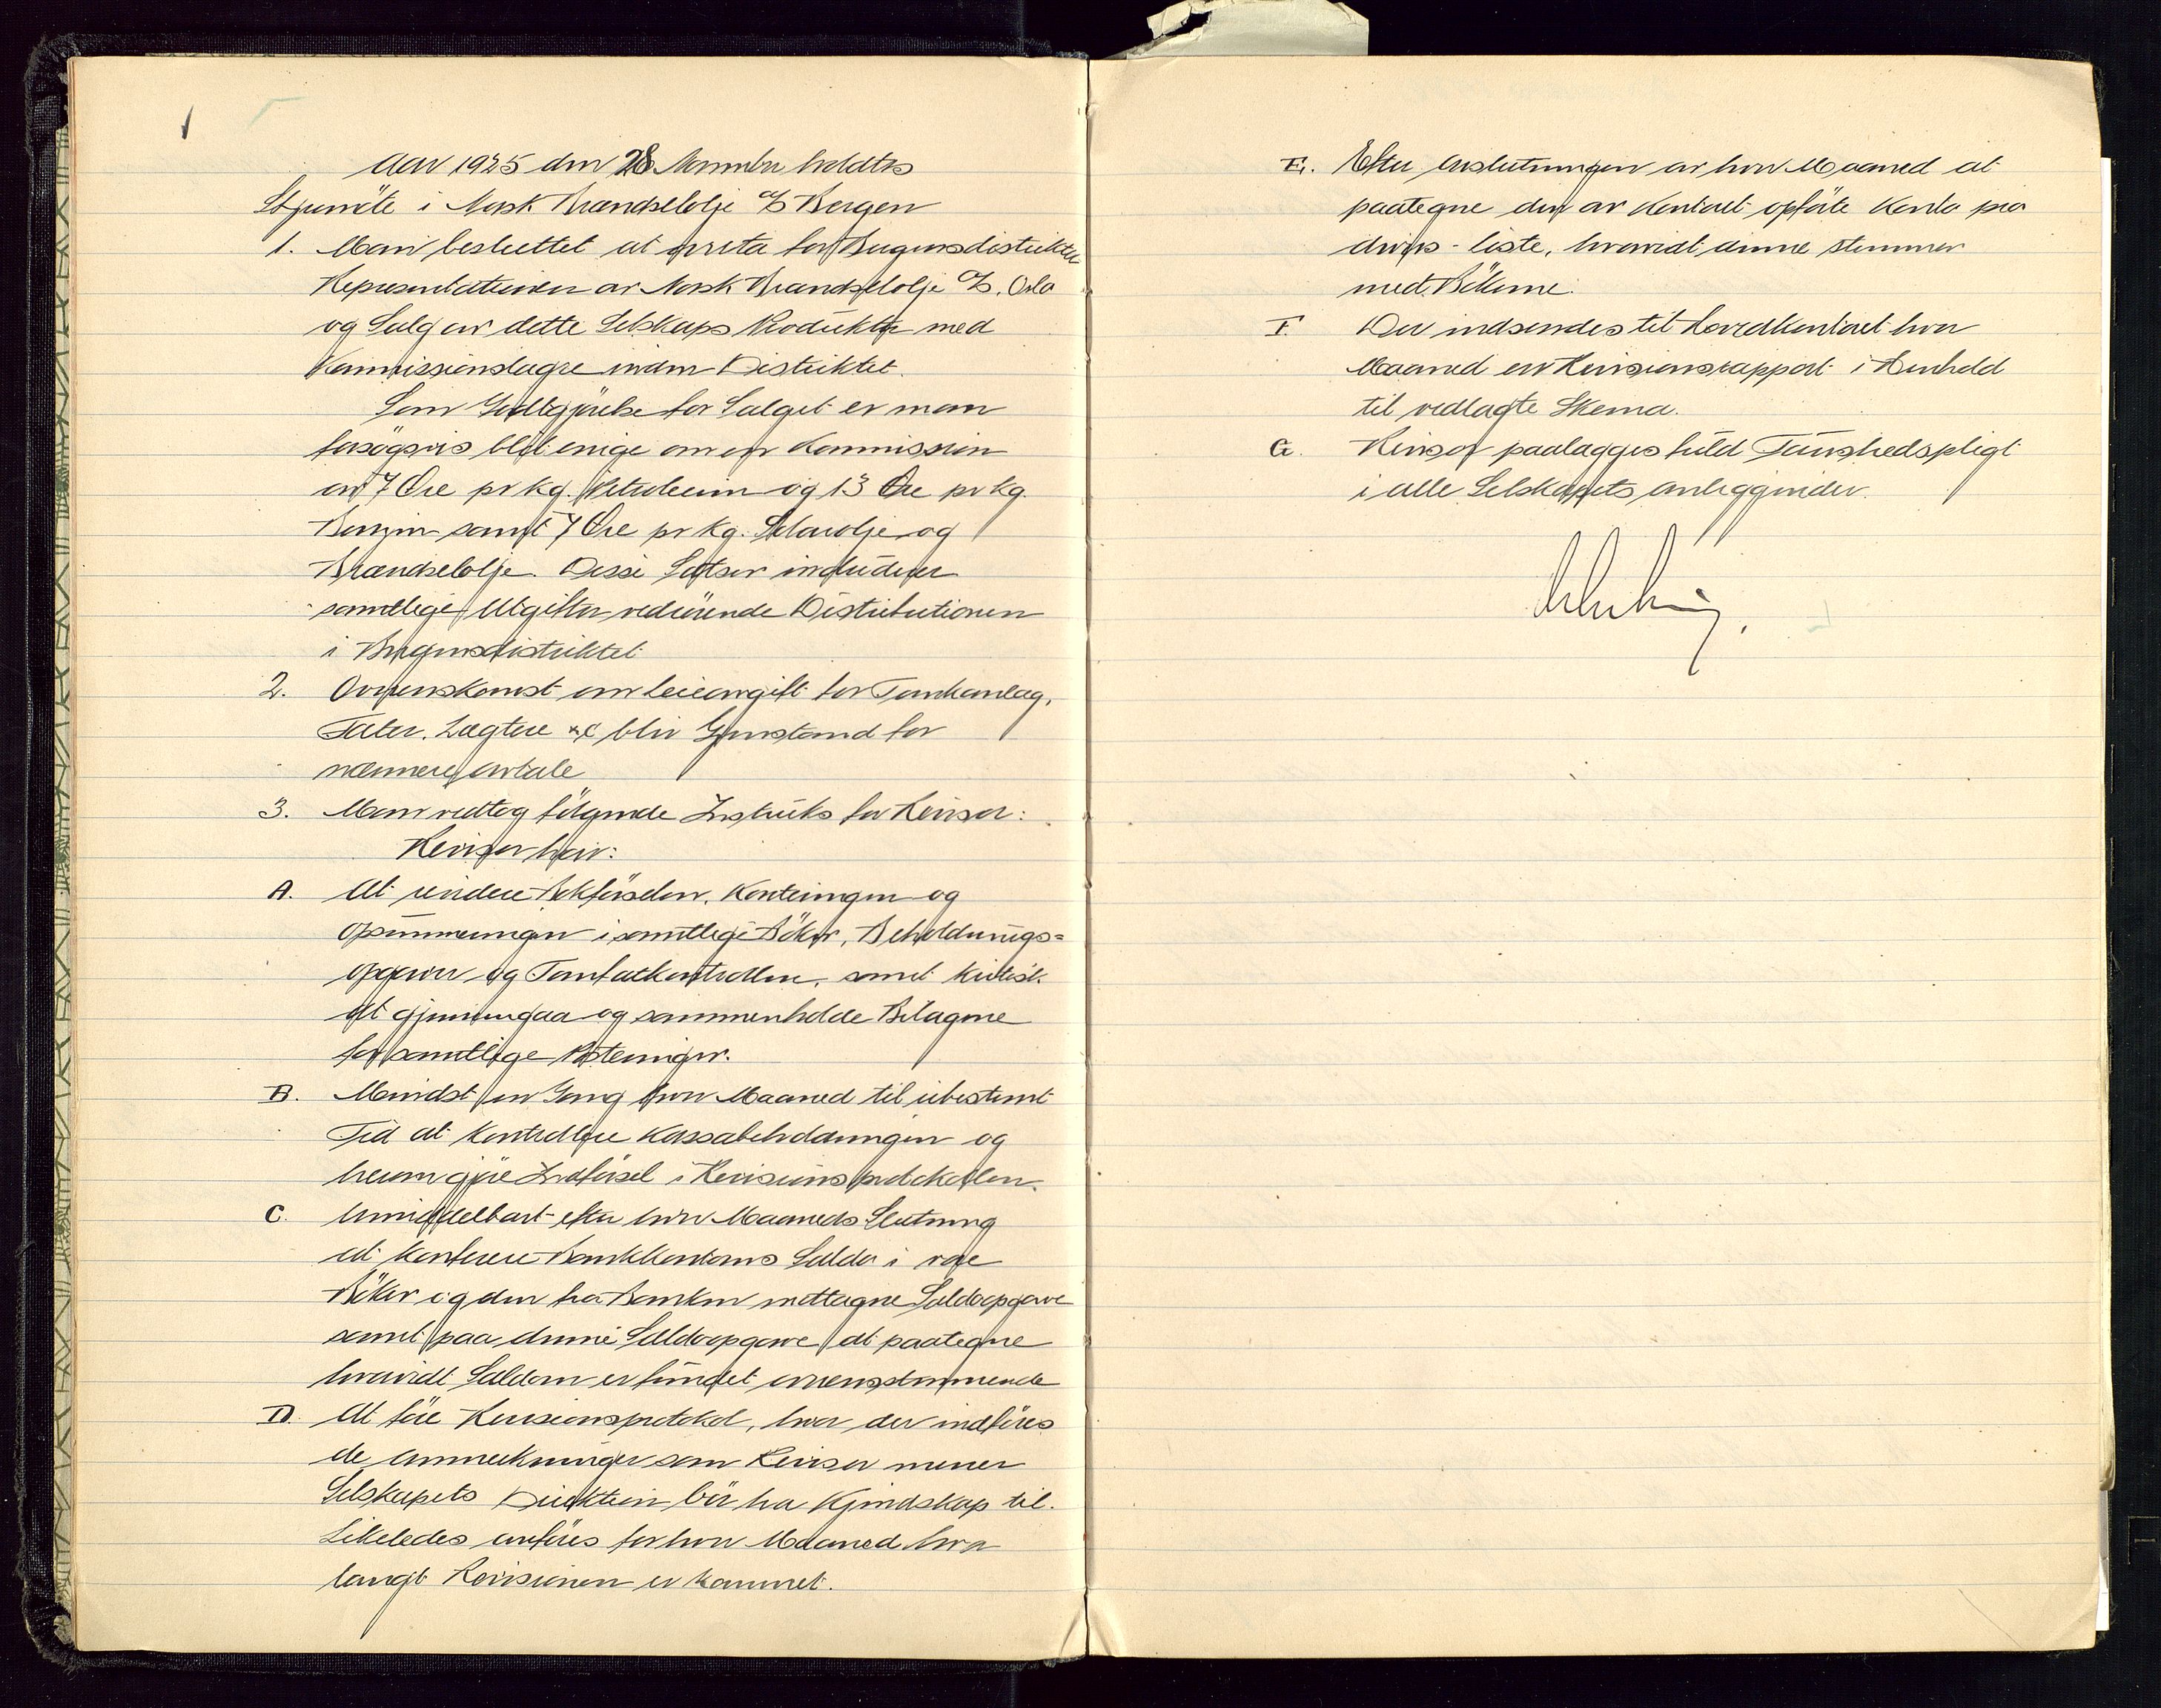 Aar 1925 den 28 November holdtes
Styremöte i Norsk Brændselolje A/S Bergen
1. Man besluttet at overta for Bergensdistriktet
Repræsentationen av Norsk Brændselolje A/S, Oslo
og Salg av dette Selskaps Produkter med
Kommissionslagre inden Distriktet.
Som Godtgjörelse for Salget er man
forsögsvis blit enige om en Kommission
av 7 Öre pr kg. Petroleum og 13 Öre pr kg.
Benzin samt 7 Öre pr kg. Solarolje og
Brændselolje. Disse Satser inkluderer
samtlige Utgifter vedrörende Distributionen
i Bergensdistriktet
2. Overenskomst om leieavgift for Tankanlæg,
Fater, Lægtere etc blir Gjenstand for
nærmere avtale
3. Man vedtog fölgende Instruks for Revisor:
Revisor har:
A. At revidere Bokförselen, Konteringen og
Opsummeringen i samtlige Böker, Beholdnings=
opgaver og Tomfatkontrollen, samt kritisk
at gjennemgaa og sammenholde Bilagene
for samtlige Posteringer.
B. Mindst en Gang hver Maaned til ubestemt
Tid at kontrollere Kassabeholdningen og
herom gjöre Indförsel i Revisionsprotokollen.
C. Umiddelbart efter hver Maaneds Slutning
at konferere Bankkontoens Saldo i våre
Böker og den fra Banken mottagne Saldoopgave
samt paa denne Saldoopgave at paategne
hvorvidt Saldoen er fundet overensstemmende
D. At före Revisionsprotokol, hvor der indföres
de anmerkninger som Revisor mener
Selskapets Direktion bör ha Kjendskap til.
Likeledes anföres for hver Maaned hvor
langt Revisionen er kommet.
E. Efter Avslutningen av hver Maaned at
paategne den av Kontoret opförte Konto pro
divers-liste, hvorvidt denne stemmer
med Bökerne.
F. Der indsendes til Hovedkontoret hver
Maaned en Revisionsrapport i Henhold
til vedlagte Skema.
G. Revisor paalægges fuld Taushedspligt
i alle Selskapets anliggender.